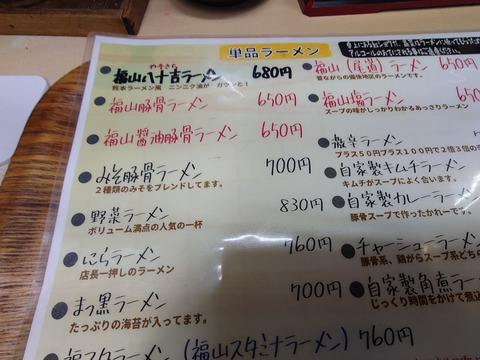 単品ラーメン
やそきち
福山八十吉ラーメン 680円
熊本ラーメン風 ニンニク油が ガツンと!
福山豚骨ラーメン 650円
福山醬油豚骨ラーメン 650円
みそ豚骨ラーメン 700円
2種類のみそをブレンドしてます。
野菜ラーメン 830円
ボリューム満点の人気の一杯
にらラーメン 760円
店長一押しのラーメン
まっ黒ラーメン 700円
たっぷりの海苔が入ってます。
(福山スタミナラーメン) 760円
福山(尾道)ラーメン 650円
昔ながらの備後地区のラーメンです。
福山塩ラーメン 650
スープの味がしっかりわかるあっさりラーメン
激辛ラーメン
プラス50円プラス100円で2倍3倍の
自家製キムチラーメン
キムチがスープによく合います。
自家製カレーラーメン
豚骨スープで作ったカレーです。
チャーシューラーメン
豚骨系、鶏がらスープ系どち
自家製角煮ラー
じっくり時間をかけて煮込